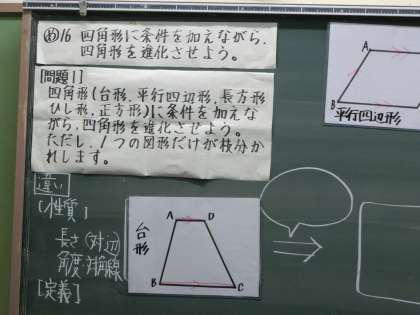 め16 四角形に条件を加えながら、
四角形を進化させよう。
[問題1]
四角形(台形、平行四辺形、長方形
ひし形、正方形)に条件を加えな
がら、四角形を進化させよう。
ただし、1つの図形だけが枝分か
れします。
違い
[性質]
長さ(対辺)
角度・対角線
[定義]
台形
A D
B C
A
B
平行四辺形